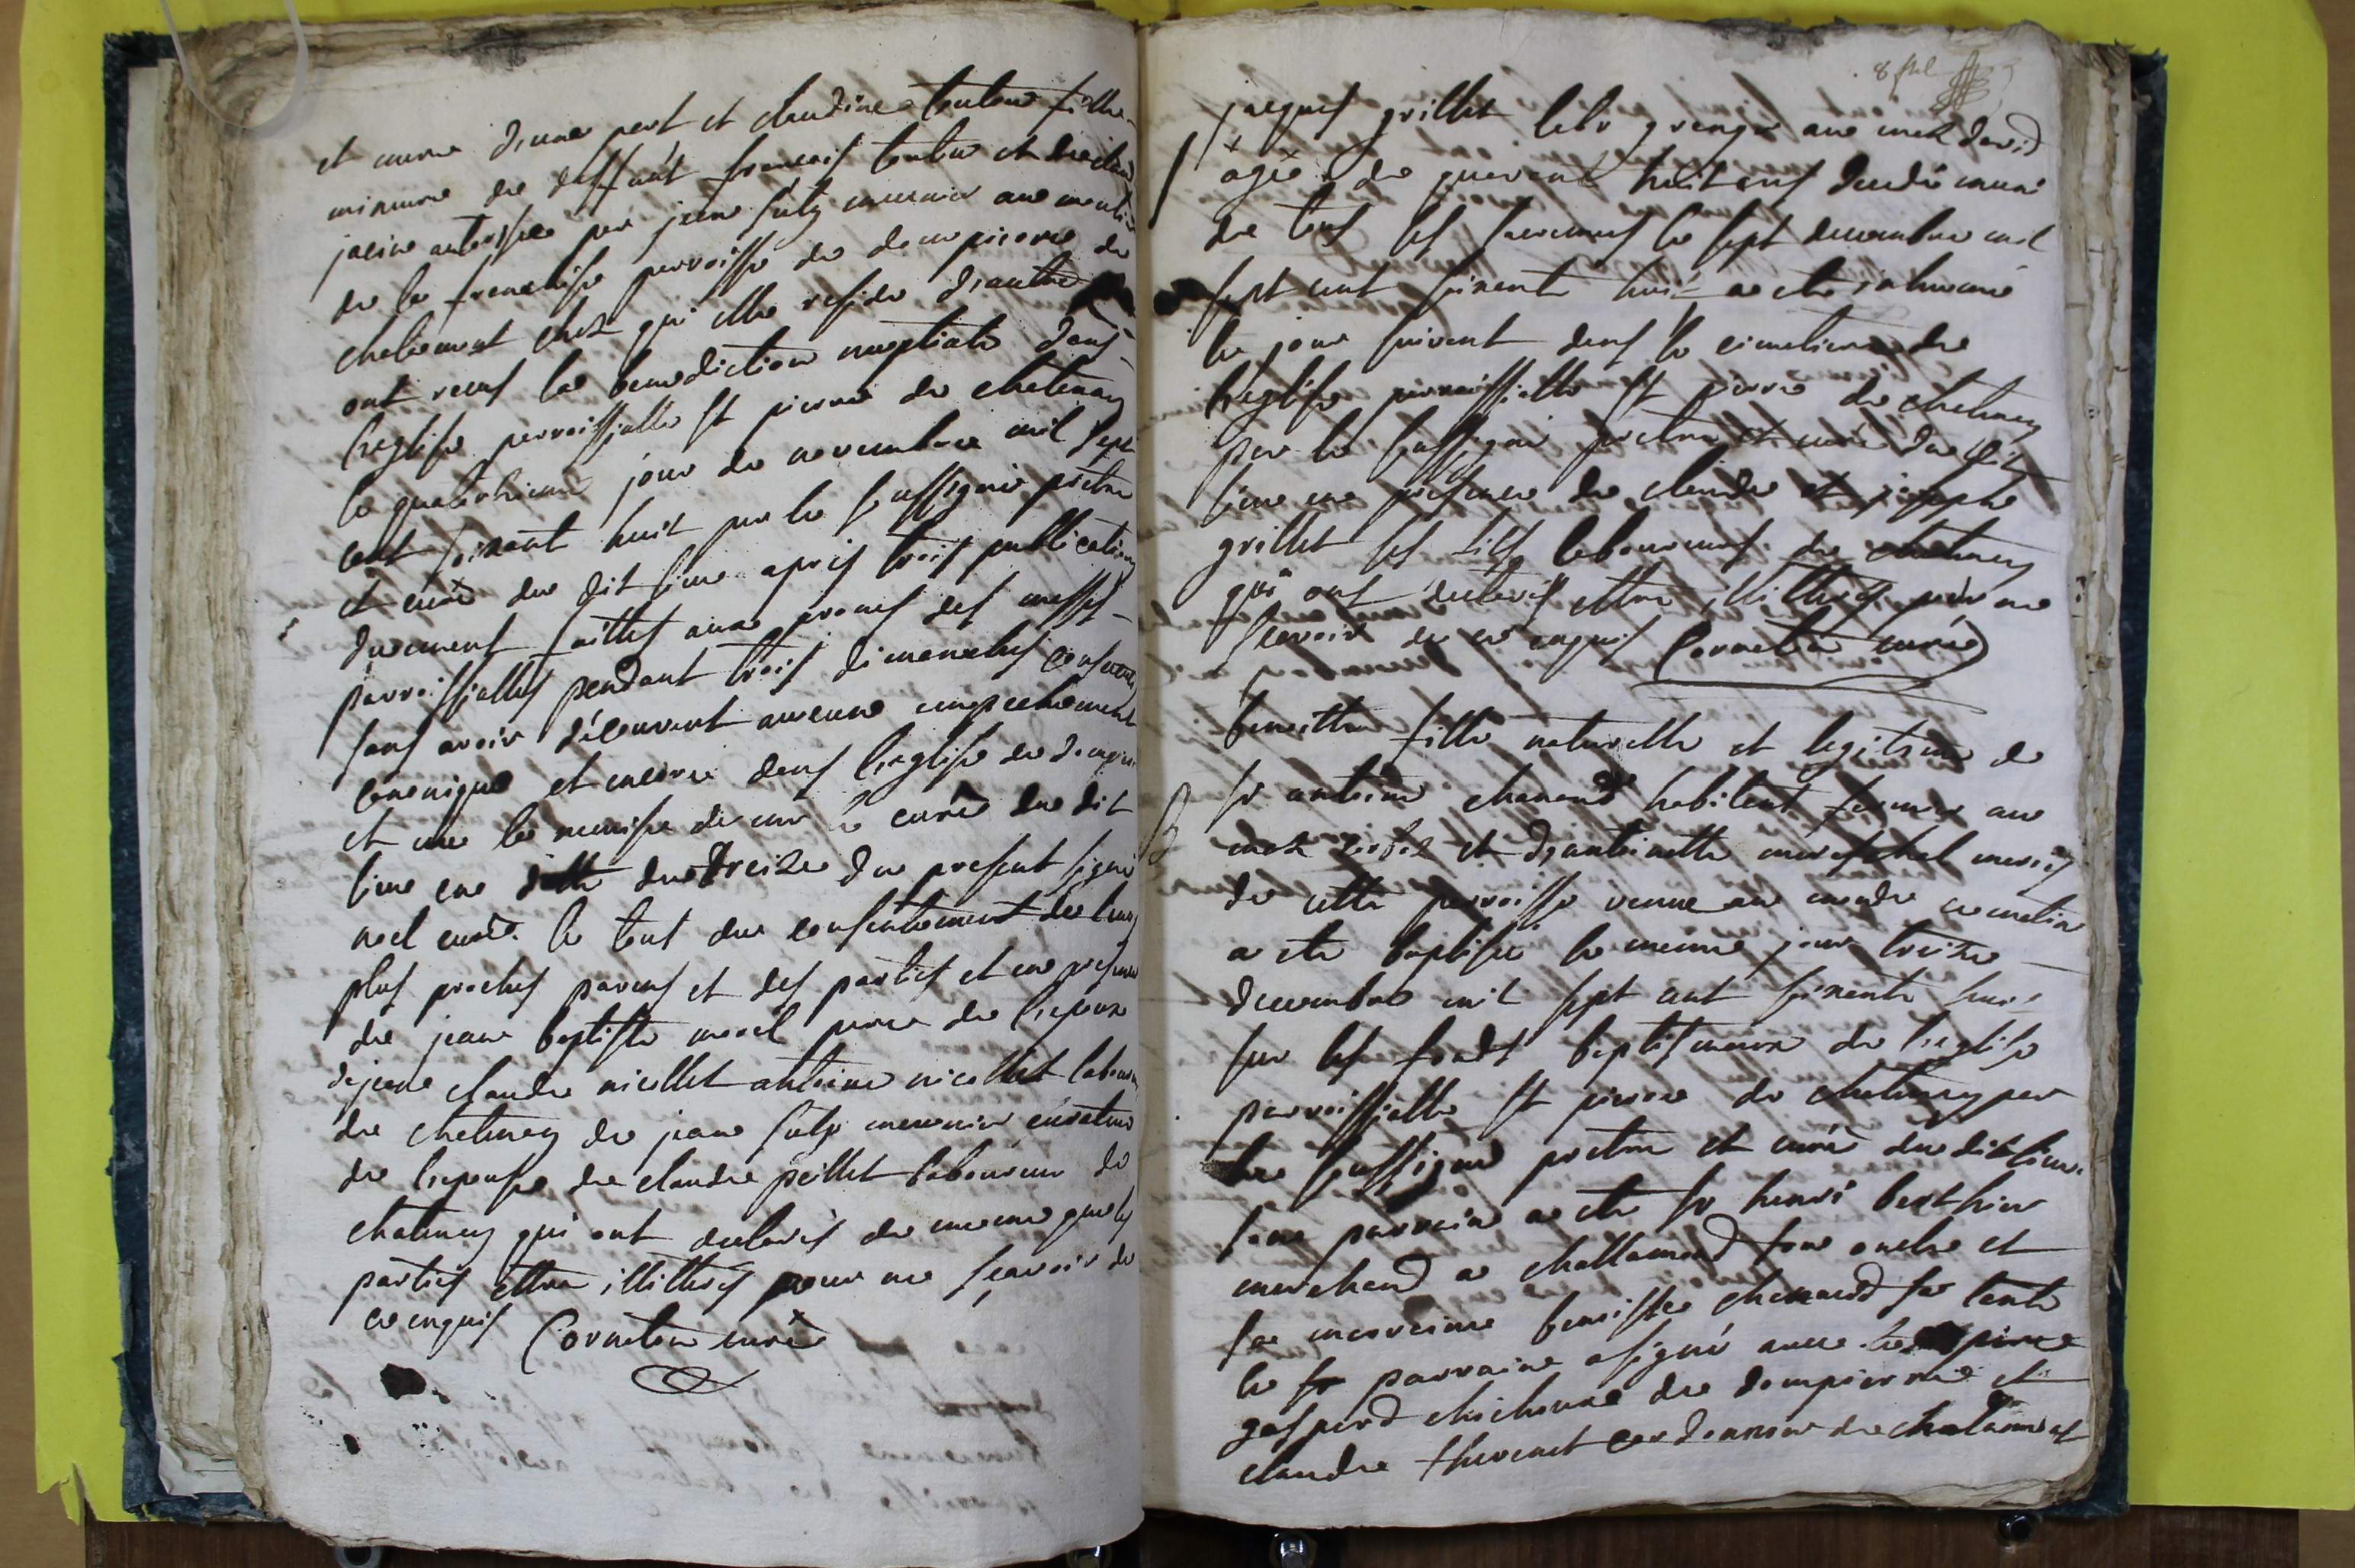 et mineur d'une part et claudine toutou fille
mineure de deffunt francois toutou et de claud
jacine autorisée par jean futy meunier au moulin
de la franchise parroisse de dompierre de
chalamont chez qui elle reside d'autre
ont receus la benediction nuptiale dans
l'eglise parroissialle st pierre de chatenay
le quatorzieme jour de novembre mil sept
cent soixant huit par le soussigné prêtre
et curé du dit lieu apres trois publications
duement faittes aux prones des messes
parroissialles pendant trois dimanches consecutifs
sans avoir découvert aucune empechement
canonique et encore dans l'eglise de dompierre
et vue la remise de mr le curé du dit
lieu en datte du treize du present signé
noel curé le tout du consentement de leurs
plus proches parens et des parties et en presence
de jean baptiste morel pere de l'epoux
de jean claude nicollet antoine nicollet laboureur
de chatenay de jean futy meunier curateur
de l'epouse de claude peillet laboureur de
chatenay qui ont declarés de meme que les
parties ettre illitterés pour ne sçavoir de
ce enquis Corneton curé
8 ftel
jacques grillet labr granger au mas david
âgé de quarant huit ans decedé muni
de tous les sacremens le sept decembre mil
sept cent soixante huit a eté inhumé
le jour suivant dans le cimetiere de
l'eglise parroissialle st pierre de chatenay
par le soussigné prêtre et curé du dit
lieu en presence de claude et joseph
grillet ses fils laboureurs de chatenay
qui ont declarés ettre illitterés pour ne
sçavoir de ce enquis Corneton curé
benoitte fille naturelle et legitime de
B sr antoine chanard habitant fermier au
mas et d'antoinette mareschal mariés
de cette parroisse venue au monde ce matin
a eté baptisée le meme jour treize
decembre mil sept cent soixante huit
sur les fonds baptismaux de l'eglise
parroissialle st pierre de chatenay par
le soussigné prêtre et curé du dit lieu
son parrain a eté sr henri berthier
marchand a challamond son oncle et
sa marraine benoitte chanard sa tante
le sr parraine a signé avec le pierre
gaspard chichoux de dompierre et
claude thevenet cordonnier de chalamont